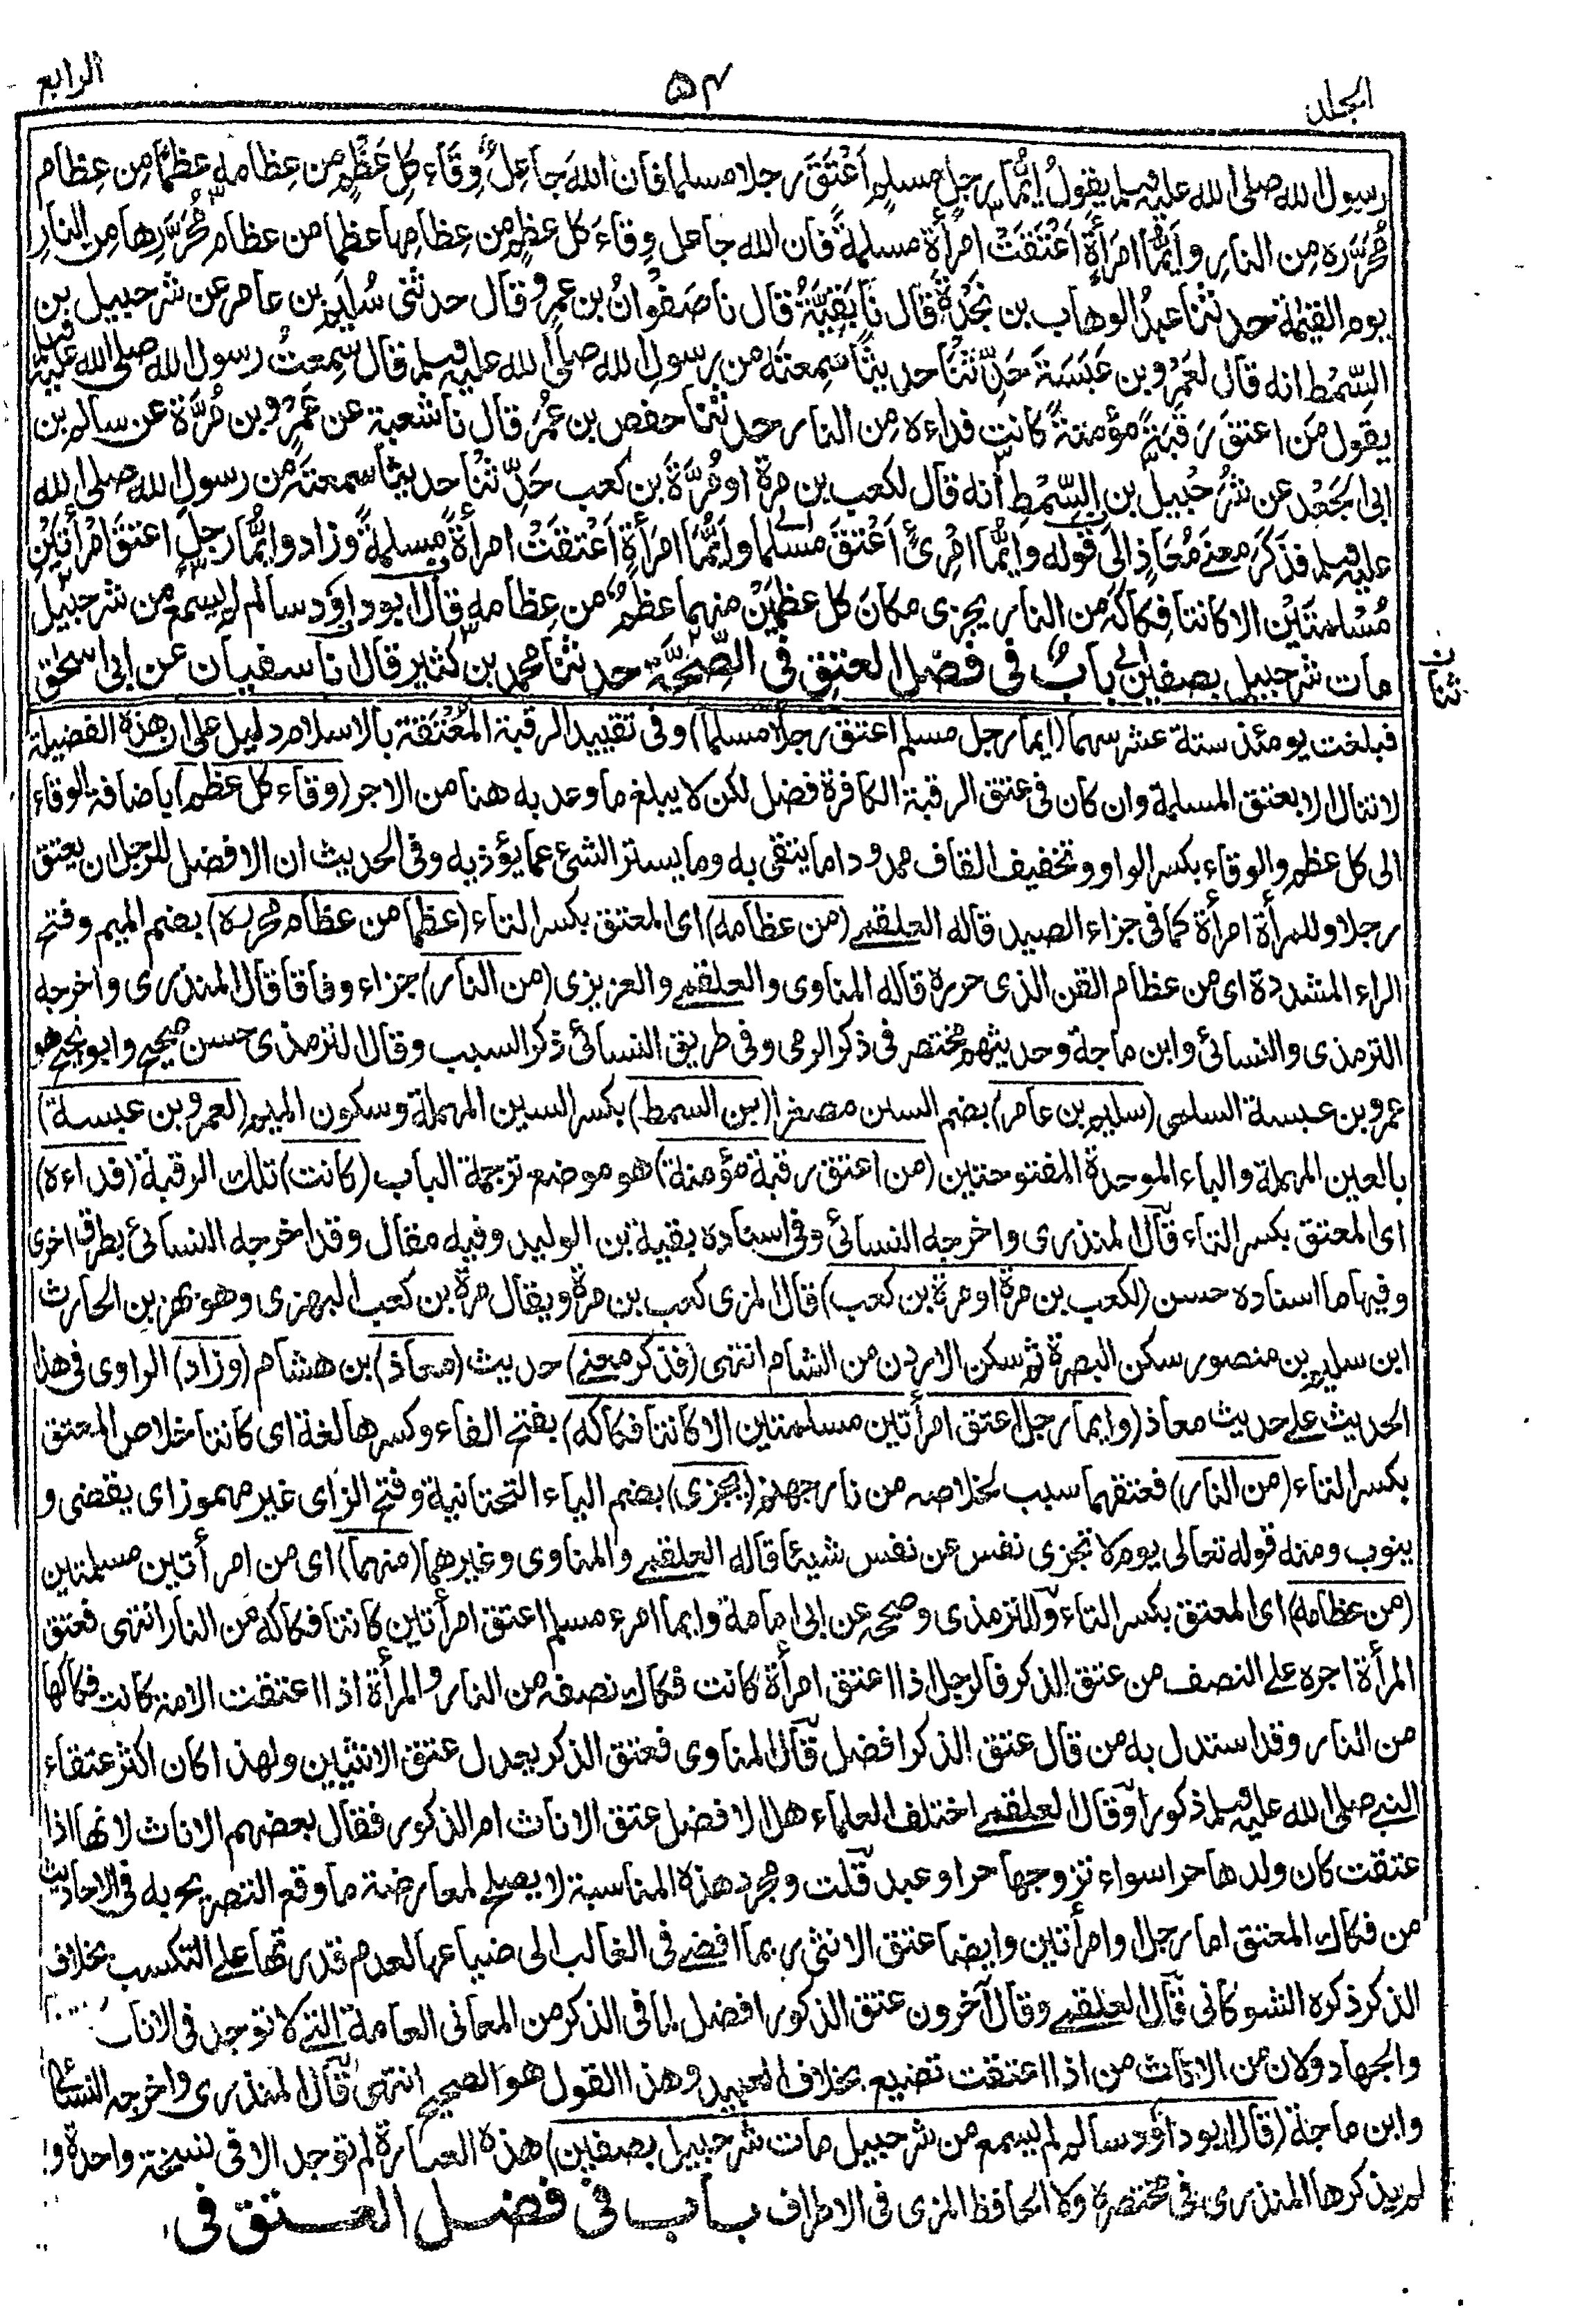 المجلد ٥٤ الرابع
رسول الله صلى الله عليه وسلم يقول أيما رجلٍ مسلمٍ أعْتَقَ رجلا مسلما فان اللهَ جاعِلٌ وِقَاءَ كلِ عَظْمٍ من عِظامه عظمًا مِن عِظام
مُحَرَّره مِن النارِ وأيُّما امرَأةٍ اَعْتَقَتْ امرأة مسلمةً فان الله جاعل وِقاءَ كل عظمٍ من عِظامِها عظما من عظام مُحَرَّرِها مِن النارِ
يوم القيمة حدثنا عبدُ الوهاب بن نَجْدةَ قال نا بَقِيَّةُ قال نا صَفوانُ بن عمرٍو قال حدثنى سُلَيم بن عامر عن شرحبيل بن
السِّمْط انه قال لعَمْرِو بن عَبَسَةَ حَدِّثنَا حديثًا سَمِعتَه من رسولِ الله صلى الله عليه وسلم قال سمعتُ رسول الله صلى الله عليه وسلم
يقول مَن اعتق رَقَبَةً مؤمنةً كانت فداءه مِن النار حدثنا حفص بن عُمَرَ قال نا شعبة عن عَمرِو بن مُرَّة عن سالم بن
ابى الجَعْد عن شُرَحْبِيلَ بن السِّمْطِ أنه قال لكعب بن مرة او مُرَّةَ بن كعب حَدِّثنَا حديثا سمعتَه من رسول الله صلى الله
عليه وسلم فذَكَرَ معنَى مُعَاذ الى قوله وايُّما امْرِئٍ اَعْتَقَ مُسلما وايُّما امرَأةٍ اَعْتَقَتْ امرأةً مسلمةً وزاد وايُّما رجلٍ اعتق امْرأتَيْنِ
مُسْلمتَيْن الا كانتا فِكاكَه من النار يجزى مكانَ كل عظمَيْن منهما عظمٌ من عِظامه قال ابوداؤد سالم لم يسمع من شرحبيل
مات شرحبيل بصفين بابٌ فى فضل العتق فى الصِّحَّة حدثنا محمد بن كثير قال نا سفيان عن ابى اسحٰق
فبلغت يومئذ ستة عشر سهما (ايما رجل مسلم اعتق رجلا مسلما) وفى تقييد الرقبة المُعْتَقَة بالاسلام دليل على ان هذه الفضيلة
لا تنال الا بعتق المسلمة وان كان فى عتق الرقبة الكافرة فضل لكن لا يبلغ ما وعد به هنا من الاجر (وقاء كل عظم) باضافة الوقاء
الى كل عظم والوقاء بكسر الواو وتخفيف القاف ممدودا ما يتقى به وما يستر الشئ عما يؤذيه وفى الحديث ان الافضل للرجل ان يعتق
رجلا وللمرأة امرأة كما فى جزاء الصيد قاله العلقمى (من عظامه) اى المعتق بكسر التاء (عظما من عظام محرره) بضم الميم وفتح
الراء المشددة اى من عظام القن الذى حرره قاله المناوى والعلقمى والعزيزى (من النار) جزاء وفاقا قال المنذرى واخرجه
الترمذى والنسائى وابن ماجة وحديثهم مختصر فى ذكر الرمى وفى طريق النسائى ذكر السبب وقال الترمذى حسن صحيح وابو نجيح هو
عمرو بن عبسة السلمى (سليم بن عامر) بضم السين مصغرا (بن السمط) بكسر السين المهملة وسكون الميم (لعمرو بن عبسة)
بالعين المهملة والباء الموحدة المفتوحتين (من اعتق رقبة مؤمنة) هو موضع ترجمة الباب (كانت) تلك الرقبة (فداءه)
اى المعتق بكسر التاء قال المنذرى واخرجه النسائى وفى اسناده بقية بن الوليد وفيه مقال وقد اخرجه النسائى بطرق اخرى
وفيها ما اسناده حسن (لكعب بن مرة او مرة بن كعب) قال المزى كعب بن مرة ويقال مرة بن كعب البهزى وهو بهز بن الحارث
ابن سليم بن منصور سكن البصرة ثم سكن الاردن من الشام انتهى (فذكر معنى) حديث (معاذ) بن هشام (وزاد) الراوى فى هذا
الحديث على حديث معاذ (وايما رجل اعتق امرأتين مسلمتين الا كانتا فكاكه) بفتح الفاء وكسرها لغة اى كانتا خلاص المعتق
بكسر التاء (من النار) فعتقهما سبب لخلاصه من نار جهنم (يجزى) بضم الياء التحتانية وفتح الزاى غير مهموز اى يقضى و
ينوب ومنه قوله تعالى يوم لا تجزى نفس عن نفس شيئا قاله العلقمى والمناوى وغيرهما (منهما) اى من امرأتين مسلمتين
(من عظامه) اى المعتق بكسر التاء وللترمذى وصححه عن ابى امامة وايما امرء مسلم اعتق امرأتين كانتا فكاكه من النار انتهى فعتق
المرأة اجره على النصف من عتق الذكر فالرجل اذا اعتق امرأة كانت فكاك نصفه من النار والمرأة اذا اعتقت الامة كانت فكاكها
من النار وقد استدل به من قال عتق الذكر افضل قال المناوى فعتق الذكر يعدل عتق الانثيين ولهذا كان اكثر عتقاء
النبى صلى الله عليه وسلم ذكورا وقال العلقمى اختلف العلماء هل الافضل عتق الاناث ام الذكور فقال بعضهم الاناث لانها اذا
عتقت كان ولدها حرا سواء تزوجها حر او عبد قلت ومجرد هذه المناسبة لا يصلح لمعارضة ما وقع التصريح به فى الاحاديث
من فكاك المعتق اما رجل او امرأتين وايضا عتق الانثى ربما افضى فى الغالب الى ضياعها لعدم قدرتها على التكسب بخلاف
الذكر ذكره الشوكانى قال العلقمى وقال آخرون عتق الذكور افضل لما فى الذكر من المعانى العامة التى لا توجد فى الاناث
والجهاد ولان من الاناث من اذا اعتقت تضيع بخلاف العبيد وهذا القول هو الصحيح انتهى قال المنذرى واخرجه النسائى
وابن ماجة (قال ابوداؤد سالم لم يسمع من شرحبيل مات شرحبيل بصفين) هذه العبارة لم توجد الا فى نسخة واحدة و
لم يذكرها المنذرى فى مختصره ولا الحافظ المزى فى الاطراف باب فى فضل العتق فى